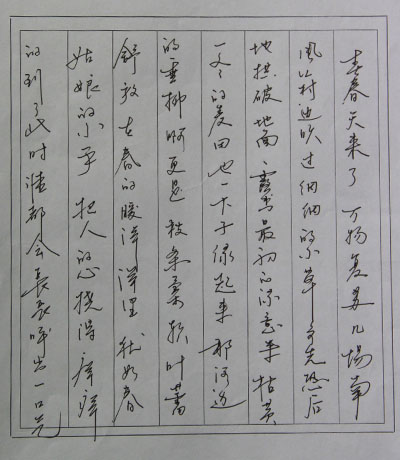 春天来了万物复苏几场南
风从村边吹过细细的小草争先恐后
地拱破地面露出最初的绿意来枯黄
的麦田也一下子绿起来那河边
的垂柳啊更是被条柔软叶蕾
舒放在春的暖洋洋里就如春
姑娘的小手把人的心挠得痒痒
的到了此时谁都会长长呼出一口气